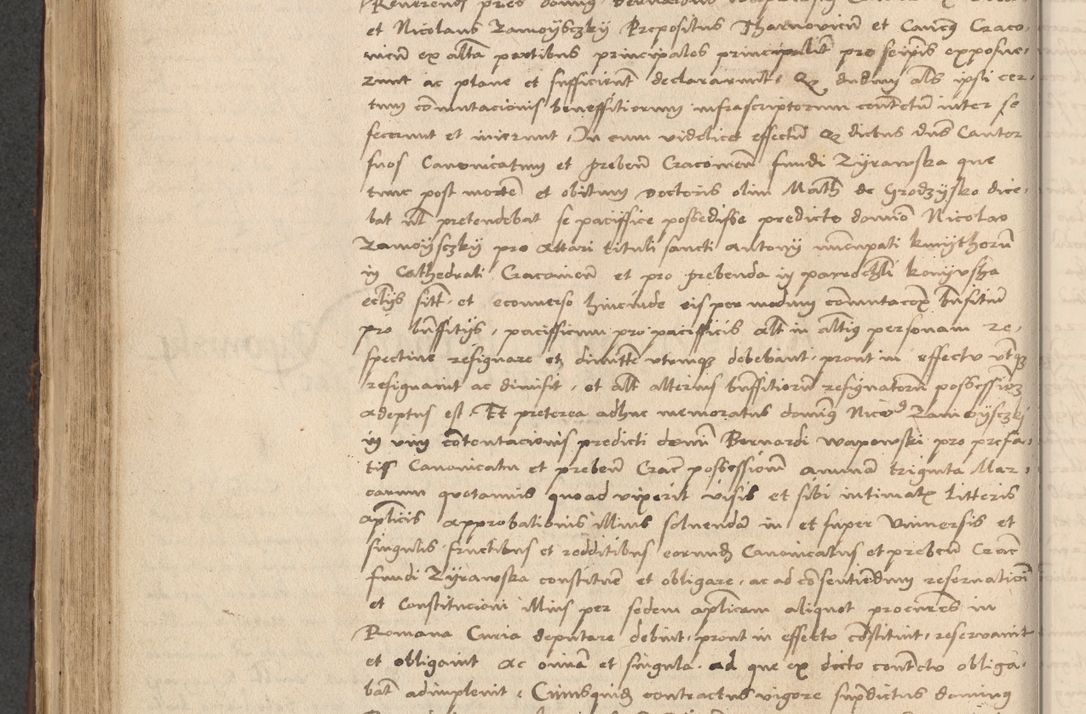 et Nicolaus Zamoysczky Prepositus Tharnovien et Cancus Craco
vien ex alta partibus principales principalit pro seipis exposue
runt ac plane et sufficient declaraverunt Q dudum als ipsi cer
tum comutacionis beneffitiorum infrascriptorum contctu inter se
fecerunt et inierunt In eum videlicet effectu Q dictus dns Cantor
suos Canonicatum et preben Cracovien fundi Zyrawska que
tunc post morte et obitum doctoris olim Math de Grodzysko dice
bat ul pretendebat se paciffice possedisse predicto domino Nicolao
Zamoysczky pro Altari tituli sancti Antony nuncupati kmythoru
in Cathedrali Cracovien et pro prebenda in parochli konyusha
ectiis sitt et econverso hincinde eis per modum comutacois bnfitiu
pro bnffitys pacifficum pro pacifficis alt in altius personam re
spective resignare et dimitte utrumq debebant prout in effectu utq
resignavit ac dimisit et alt alterius bnffitioru resignatoru possession
adeptus est Et preterea adhuc memoratus dominus Nicos Zamoysczki
in vim contentacionis predicti domi Bernardi Wapowski pro prefa
tis Canonicatu et preben Crac possessione annuam triginta Mar
carum quotannis quoad vixerit visis et sibi intimatis litteris
aplicis approbationis illius solvendam in et super Universis et
singulis fructibus et redditibus eorund Canonicatus et preben Crac
fundi Zyrawska constitue et obligare ac ad consentiendum reservationi
et Constitucioni illius per sedem aplicam aliquot procures in
Romana Curia deputare debuit prout in effectu constituit reservavit
et obligavit Ac omia et singula ad que ex dicto contctu obliga
bat adimplevit Cuiusquid contractus vigore supdictus dominus